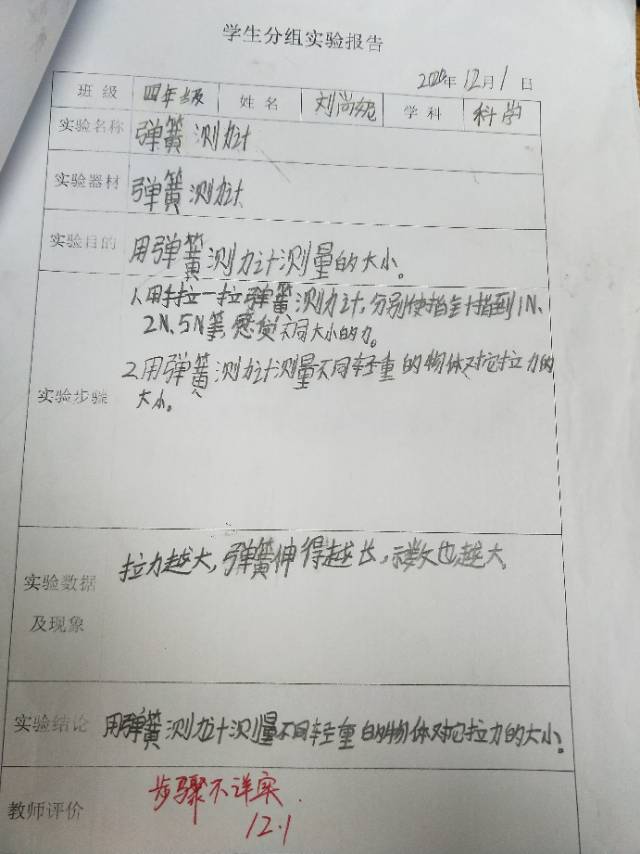 学生分组实验报告
2020年12月1日
班级 四年级 姓名 刘尚 学科 科学
实验名称 弹簧测力计
实验器材 弹簧测力计
实验目的 用弹簧测力计测量的大小。
1.用手拉一拉弹簧测力计,分别使指针指到1N、
2N、5N等,感觉不同大小的力。
实验步骤 2.用弹簧测力计测量不同轻重的物体对它拉力的
大小。
实验数据 拉力越大,弹簧伸得越长,示数也越大
及现象
实验结论 用弹簧测力计测量不同轻重的物体对它拉力的大小。
教师评价 步骤不详实.
12.1